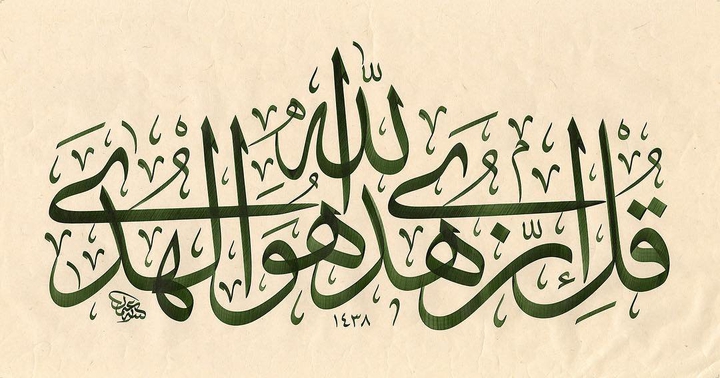 قُلْ إِنَّ هُدَى اللَّهِ هُوَ الْهُدَى
١٤٣٨